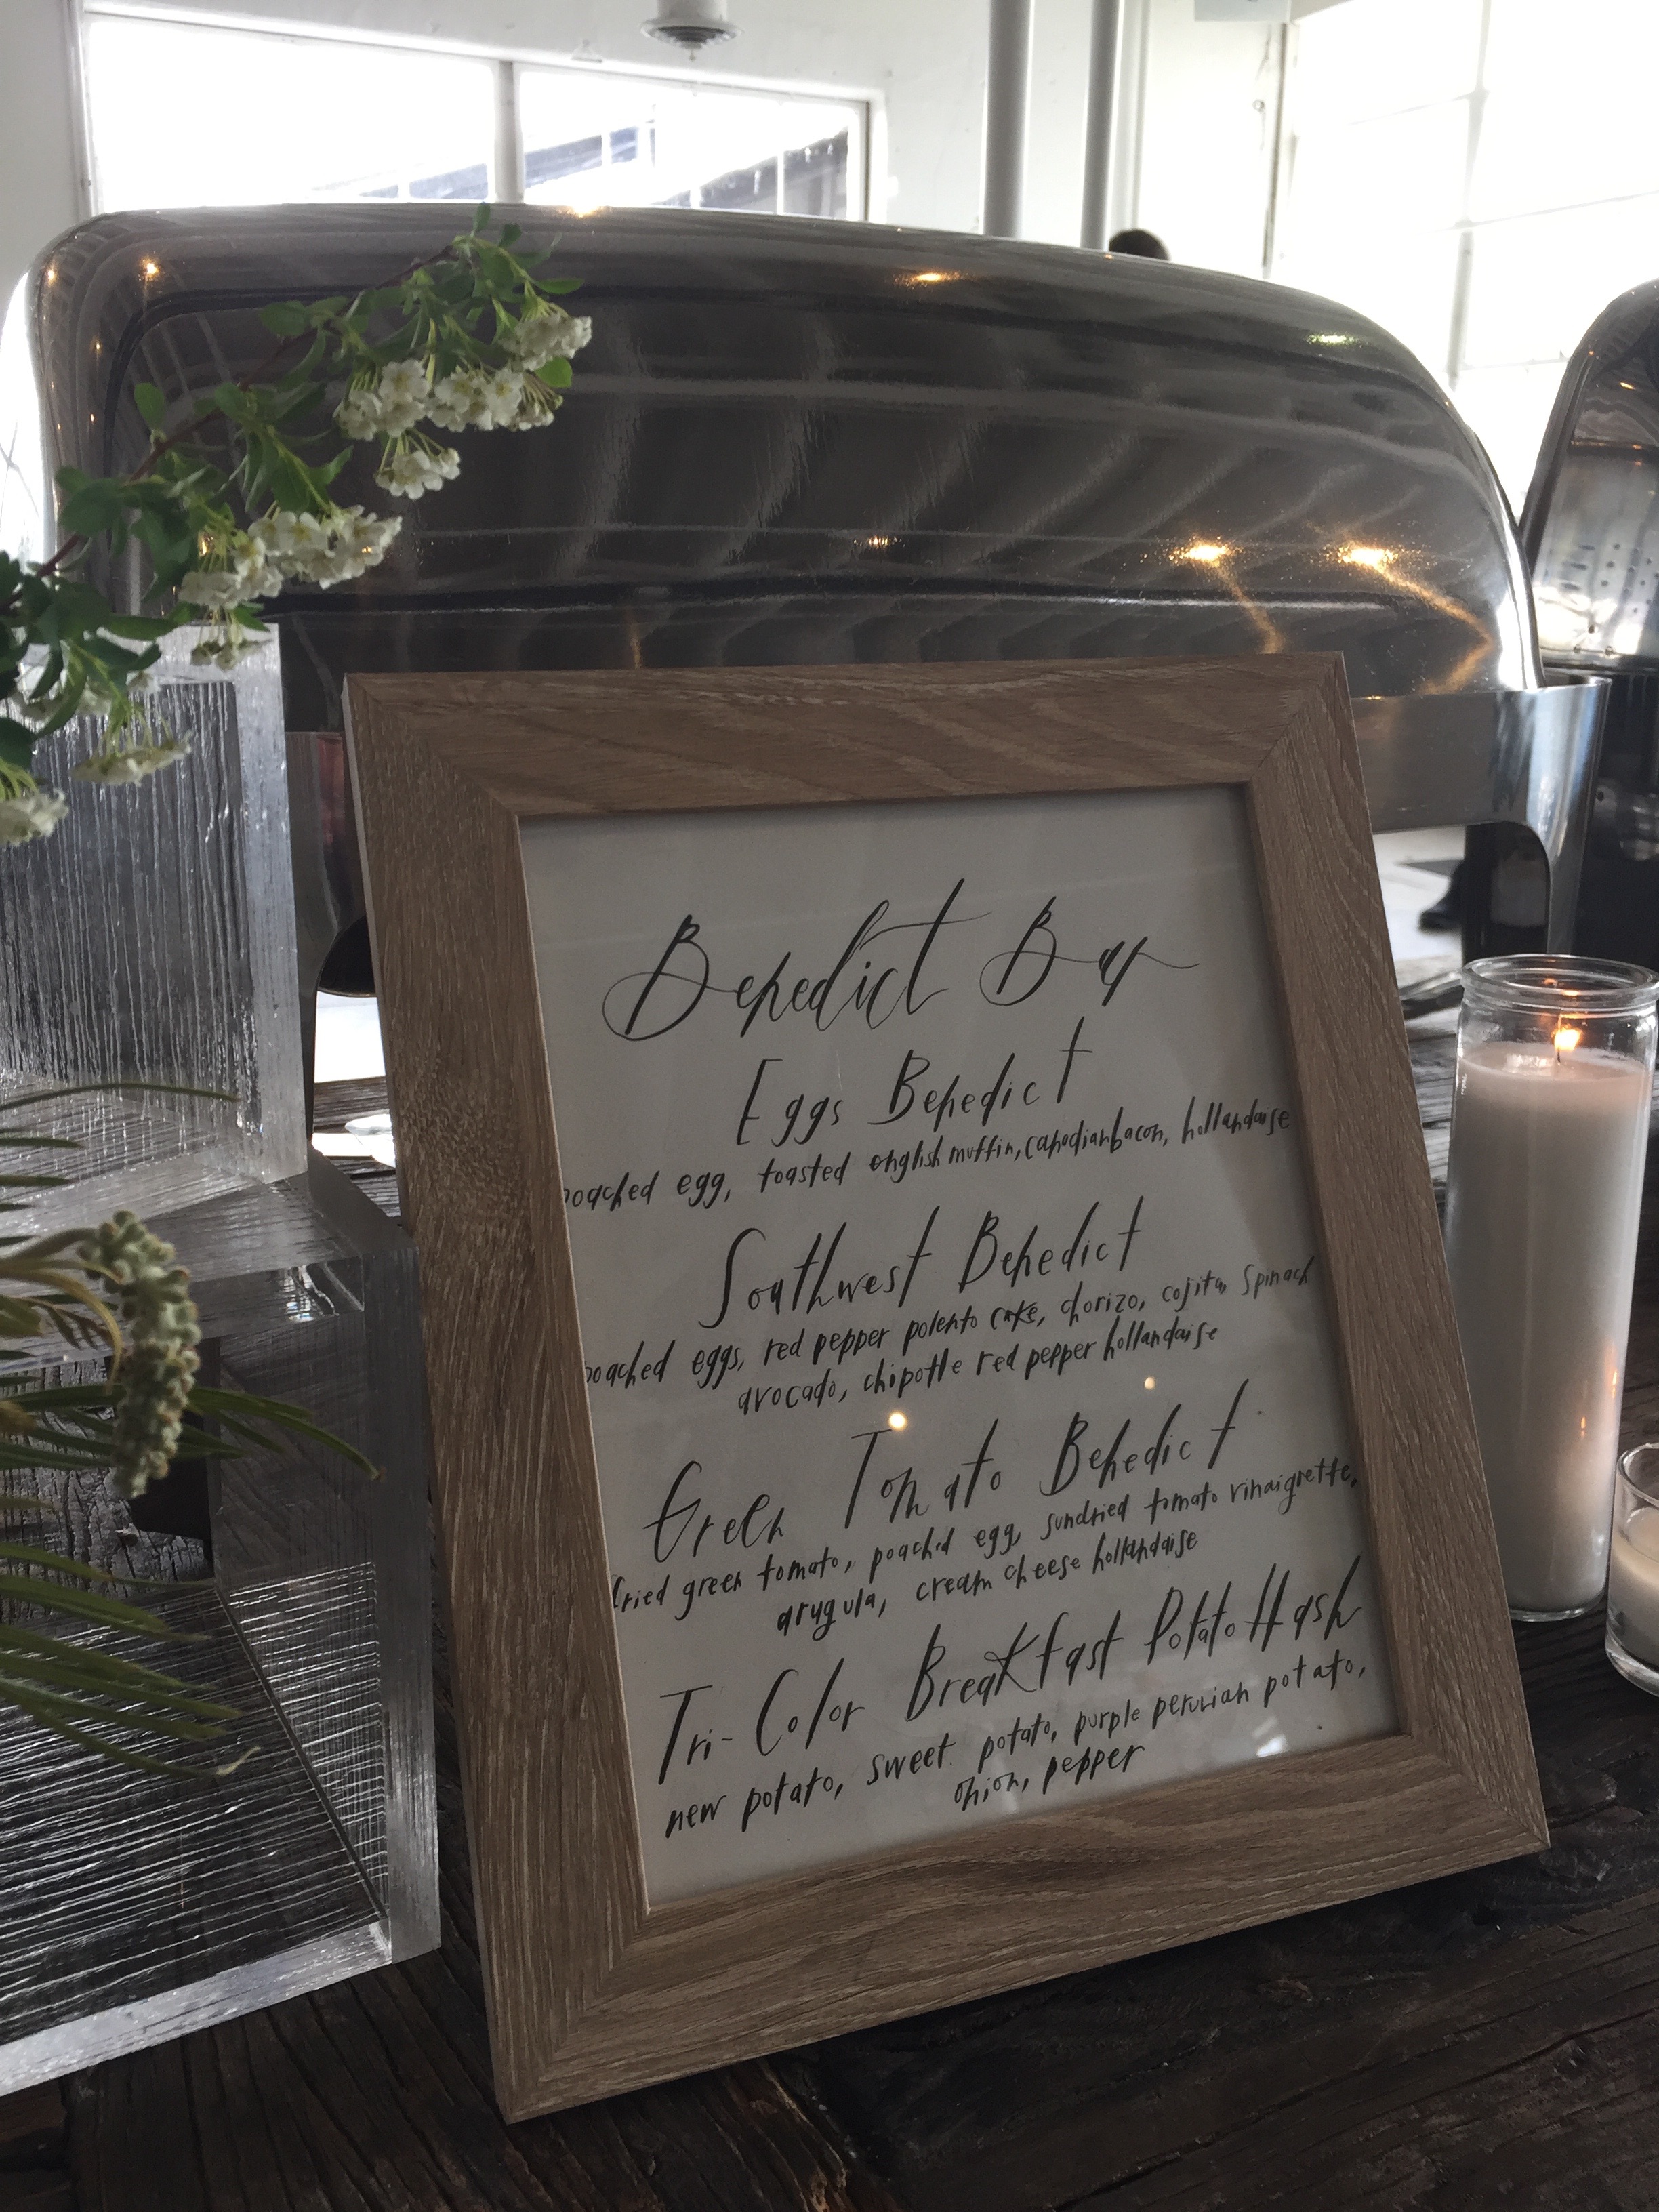 Benedict Bar
Eggs Benedict
poached egg, toasted english muffin, canadian bacon, hollandaise
Southwest Benedict
poached eggs, red pepper polenta cake, chorizo, cojita, spinach
avocado, chipotle red pepper hollandaise
Green Tomato Benedict
fried green tomato, poached egg, sundried tomato vinaigrette,
arugula, cream cheese hollandaise
Tri-Color Breakfast Potato Hash
new potato, sweet potato, purple peruvian potato,
onion, pepper